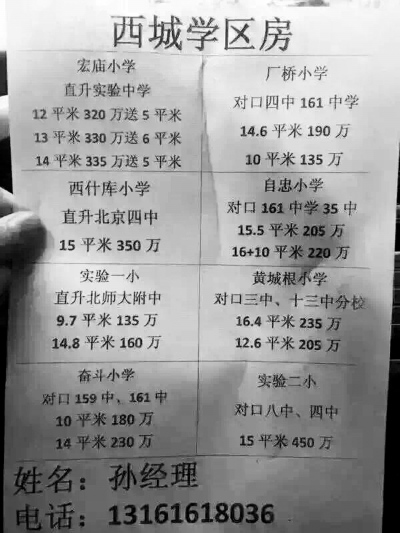 西城学区房
宏庙小学
直升实验中学
12 平米 320 万送 5 平米
13 平米 330 万送 6 平米
14 平米 335 万送 5 平米
厂桥小学
对口四中 161 中学
14.6 平米 190 万
10 平米 135 万
西什库小学
直升北京四中
15 平米 350 万
自忠小学
对口 161 中学 35 中
15.5 平米 205 万
16+10 平米 220 万
实验一小
直升北师大附中
9.7 平米 135 万
14.8 平米 160 万
黄城根小学
对口三中、十三中分校
16.4 平米 235 万
12.6 平米 205 万
奋斗小学
对口 159 中、161 中
10 平米 180 万
14 平米 230 万
实验二小
对口八中、四中
15 平米 450 万
姓名：孙经理
电话：13161618036